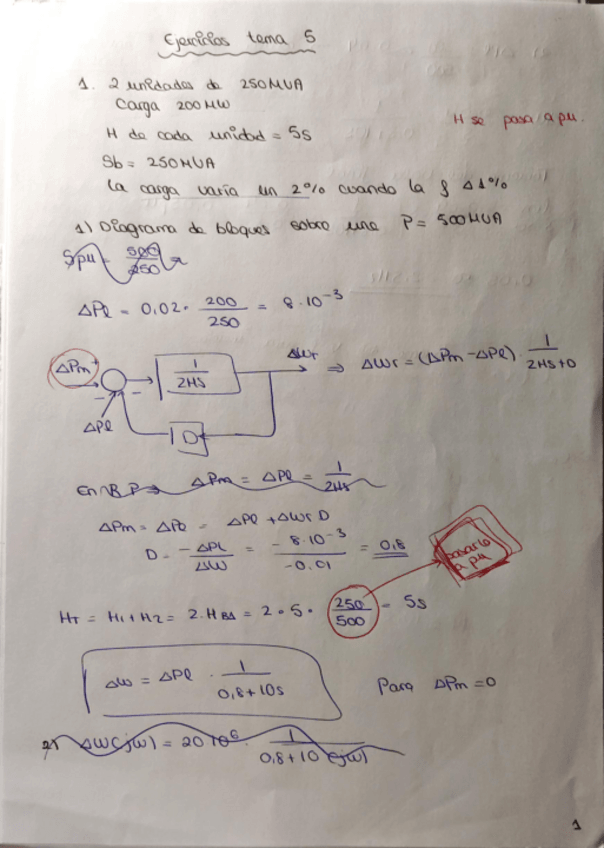 Ejercicios tema 5
1. 2 unidades de 250MVA
Carga 200MW
H se pasa a pu.
H de cada unidad = 5s
Sb = 250MVA
la carga varía un 2% cuando la f Δ1%
1) Diagrama de bloques sobre una P = 500MVA
Spu = 500/250 =
ΔPl = 0,02 · 200/250 = 8·10⁻³
ΔPm + 1/2HS ΔWr ⇒ ΔWr = (ΔPm - ΔPl) · 1/2HS+D
- -
ΔPl D
En R.P ⇒ ΔPm = ΔPl = 1/2Hs
ΔPm = ΔPe = ΔPl + ΔWr D
D = -ΔPL/ΔW = -8·10⁻³/-0.01 = 0,8
pasarlo a pu
HT = H1 + H2 = 2·HBA = 2·5· 250/500 = 5s
ΔW = ΔPl · 1/0,8+10s Para ΔPm = 0
2) ΔW(jw) = 20 10⁶ · 1/0,8+10(jw)
1